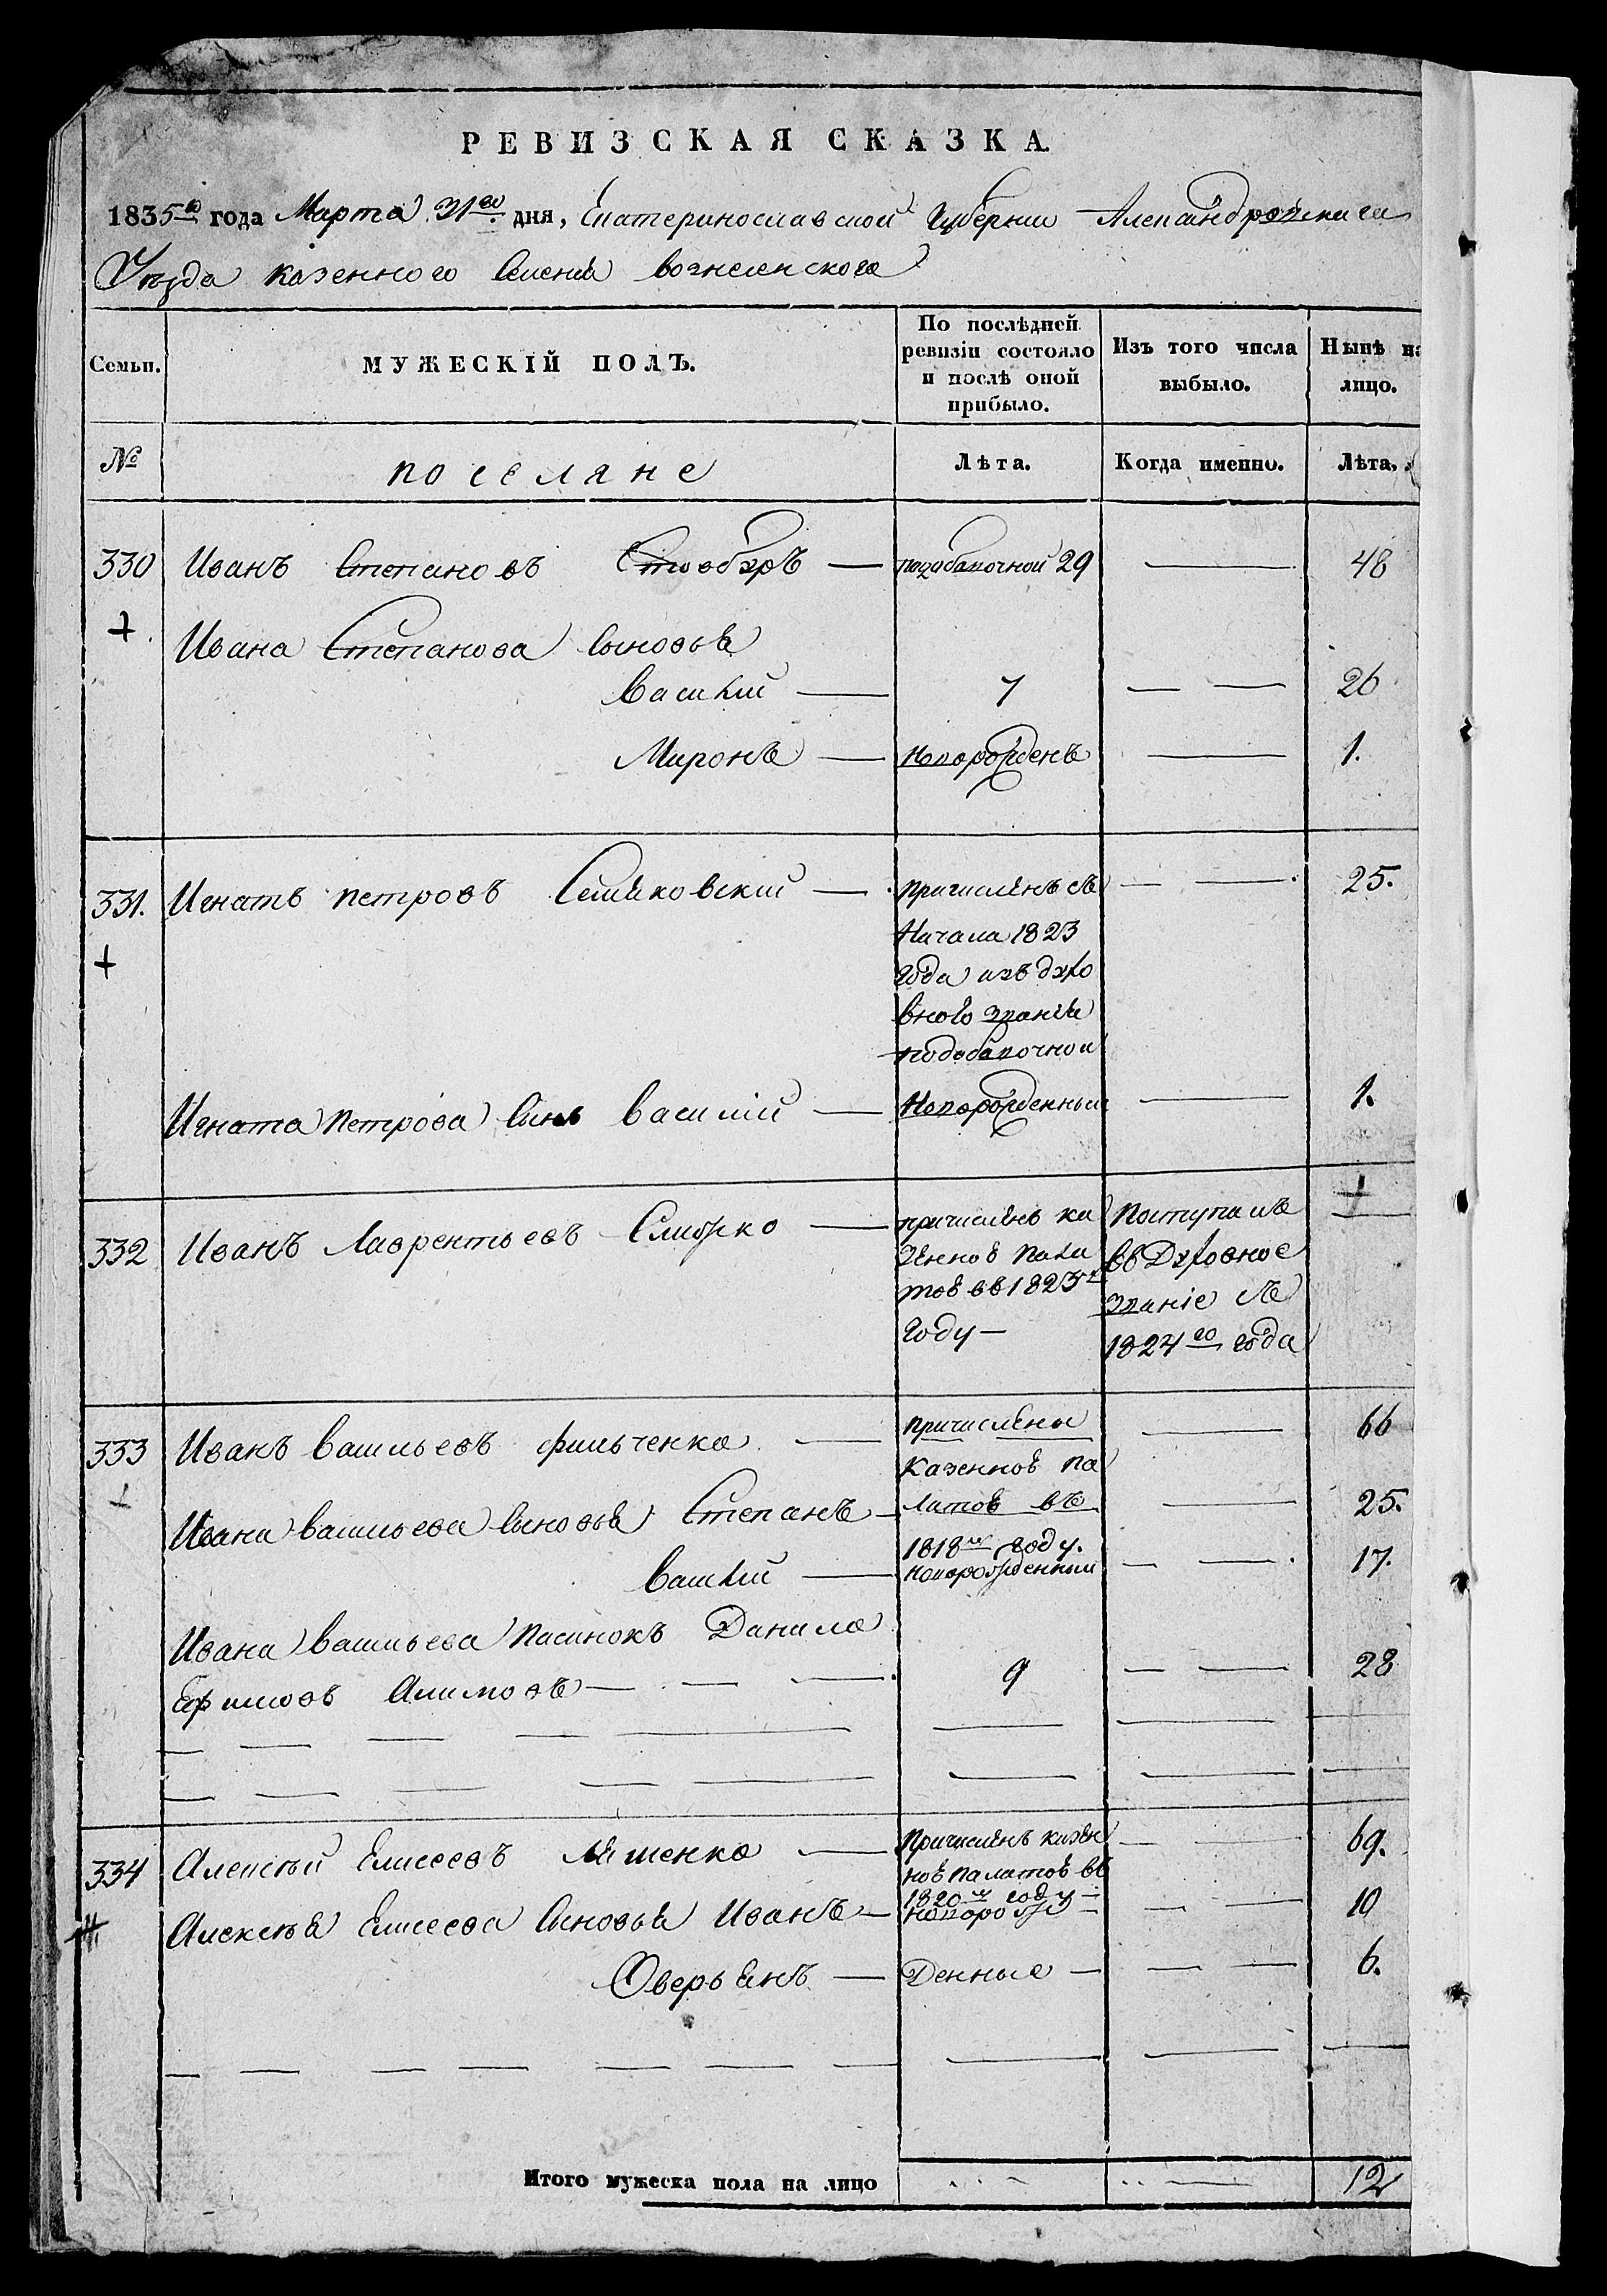 РЕВИЗСКАЯ СКАЗКА.
1835го года Марта 31го дня, Екатеринославской Губернии Александровскаго
Уезда казенного Селенія вознесенского
Семьи. МУЖЕСКІЙ ПОЛЪ. По послѣдней ревизіи состояло и послѣ оной прибыло. Изъ того числа выбыло. Нынѣ на лицо.
№ поселяне Лѣта. Когда именно. Лѣта.
330 Иванъ Степановъ 29 48
Ивана Степанова Сыновья
Василій 7 26
Миронъ новорожденъ 1.
331. Игнатъ петровъ Семяковскій причисленъ съ 25.
Начала 1823
Года изъ духо
вного званія
Игната Петрова Сынъ Василій Новорожденный 1.
332 Иванъ Лаврентьевъ причисленъ ка Поступилъ
зенной пала въ Духовное
той въ 1823м званіе съ
году 1824го года
333 Иванъ Васильевъ фильченко Причислены 66
Казенной па
Ивана Васильева Сыновья Степанъ латой въ 25.
1818м году.
Василій новорожденный 17.
Ивана Васильева пасинокъ Данило
Ефимовъ Алимовъ 9 28
334 Алексей Елисеевъ Ляшенко Причисленъ казен 69.
ной палатой въ
1820м году
Алексея Елисеева Сыновья Иванъ новорож 10
Оверьянъ Денные 6.
Итого мужеска пола на лицо 12